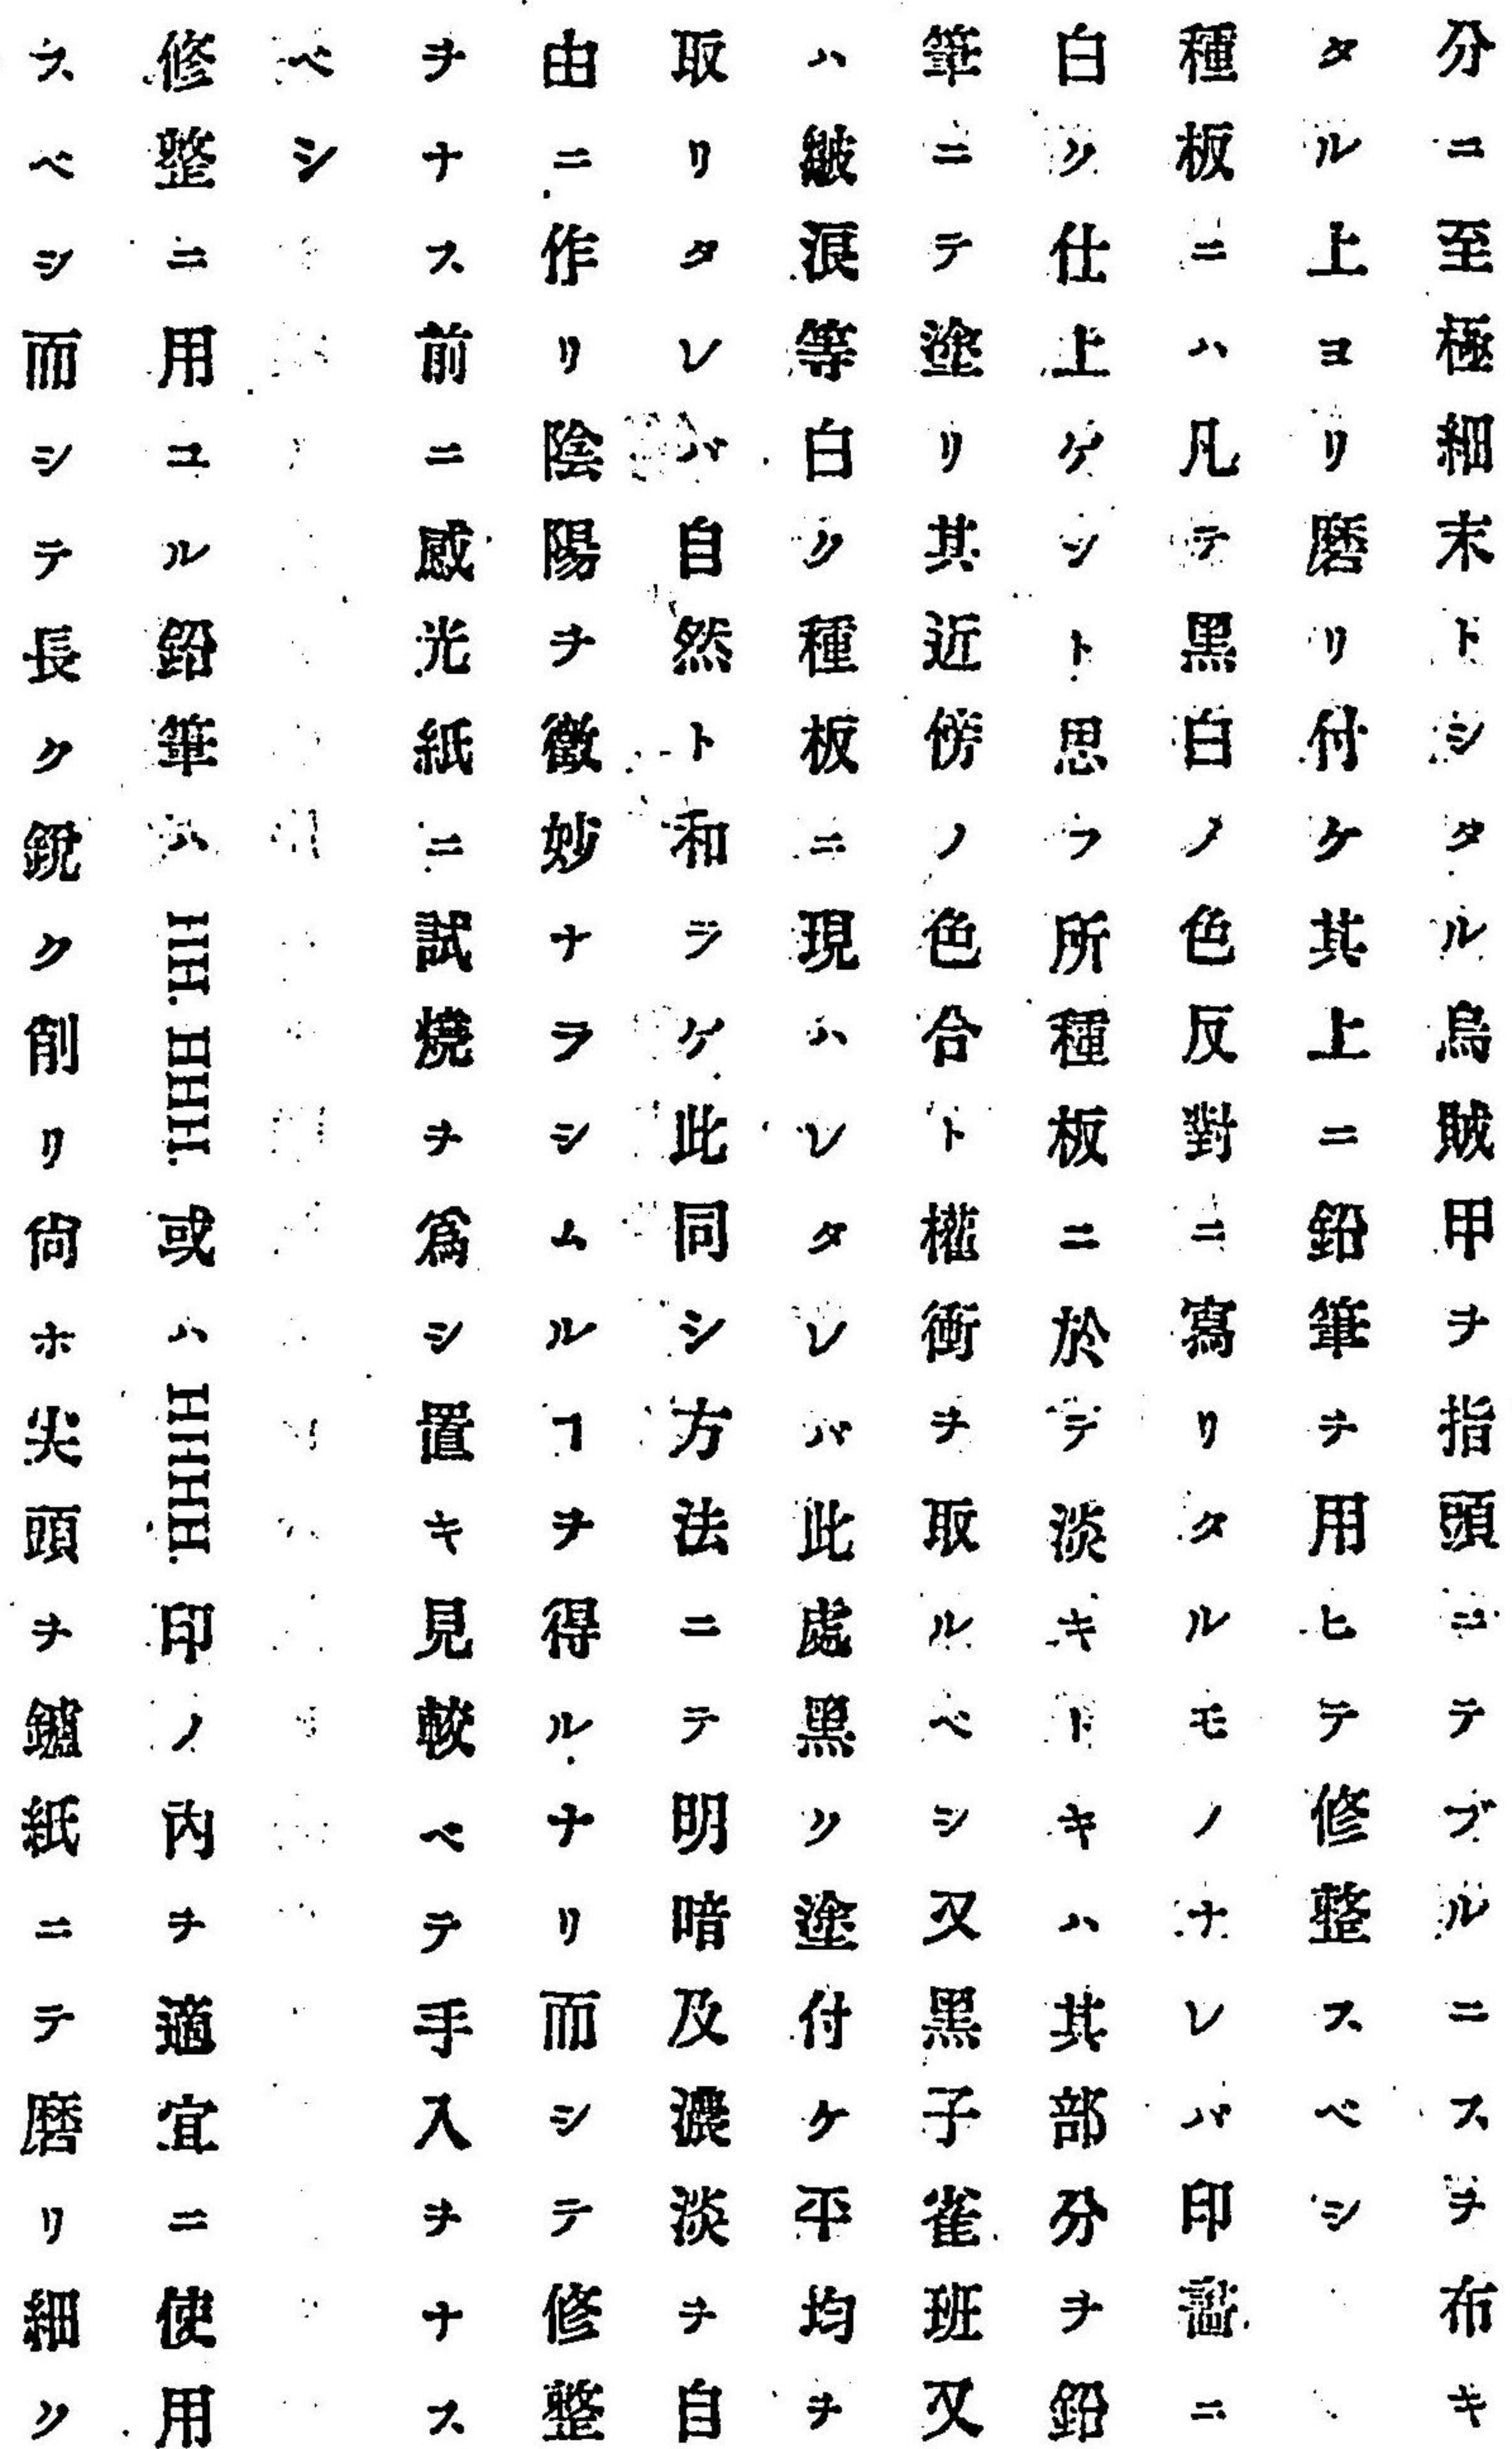 分ニ至極細末トシタル烏賊甲ヲ指頭ニテブルニスヲ布キ
タル上ヨリ磨リ付ケ其上ニ鉛筆ヲ用ヒテ修整スベシ
種板ニハ凡テ黒白ノ色反對ニ寫リタルモノナレバ印畵ニ
白ク仕上ゲシト思フ所種板ニ於テ淡キトキハ其部分ヲ鉛
筆ニテ塗リ其近傍ノ色合ト權衝ヲ取ルベシ又黒子雀班又
ハ皺浪等白ク種板ニ現ハレタレバ此處黒ク塗付ケ平均ヲ
取リタレバ自然ト和ラケ此同シ方法ニテ明暗及濃淡ヲ自
由ニ作リ陰陽ヲ微妙ナラシムルヿヲ得ルナリ而シテ修整
ヲナス前ニ感光紙ニ試燒ヲ爲シ置キ見較ベテ手入ヲナス
ベシ
修整ニ用ユル鉛筆ハHH.HHHH.或ハHHHHH.印ノ內ヲ適宜ニ使用
スベシ而シテ長ク鋭ク削リ尙ホ尖頭ヲ鑢紙ニテ磨リ細ク